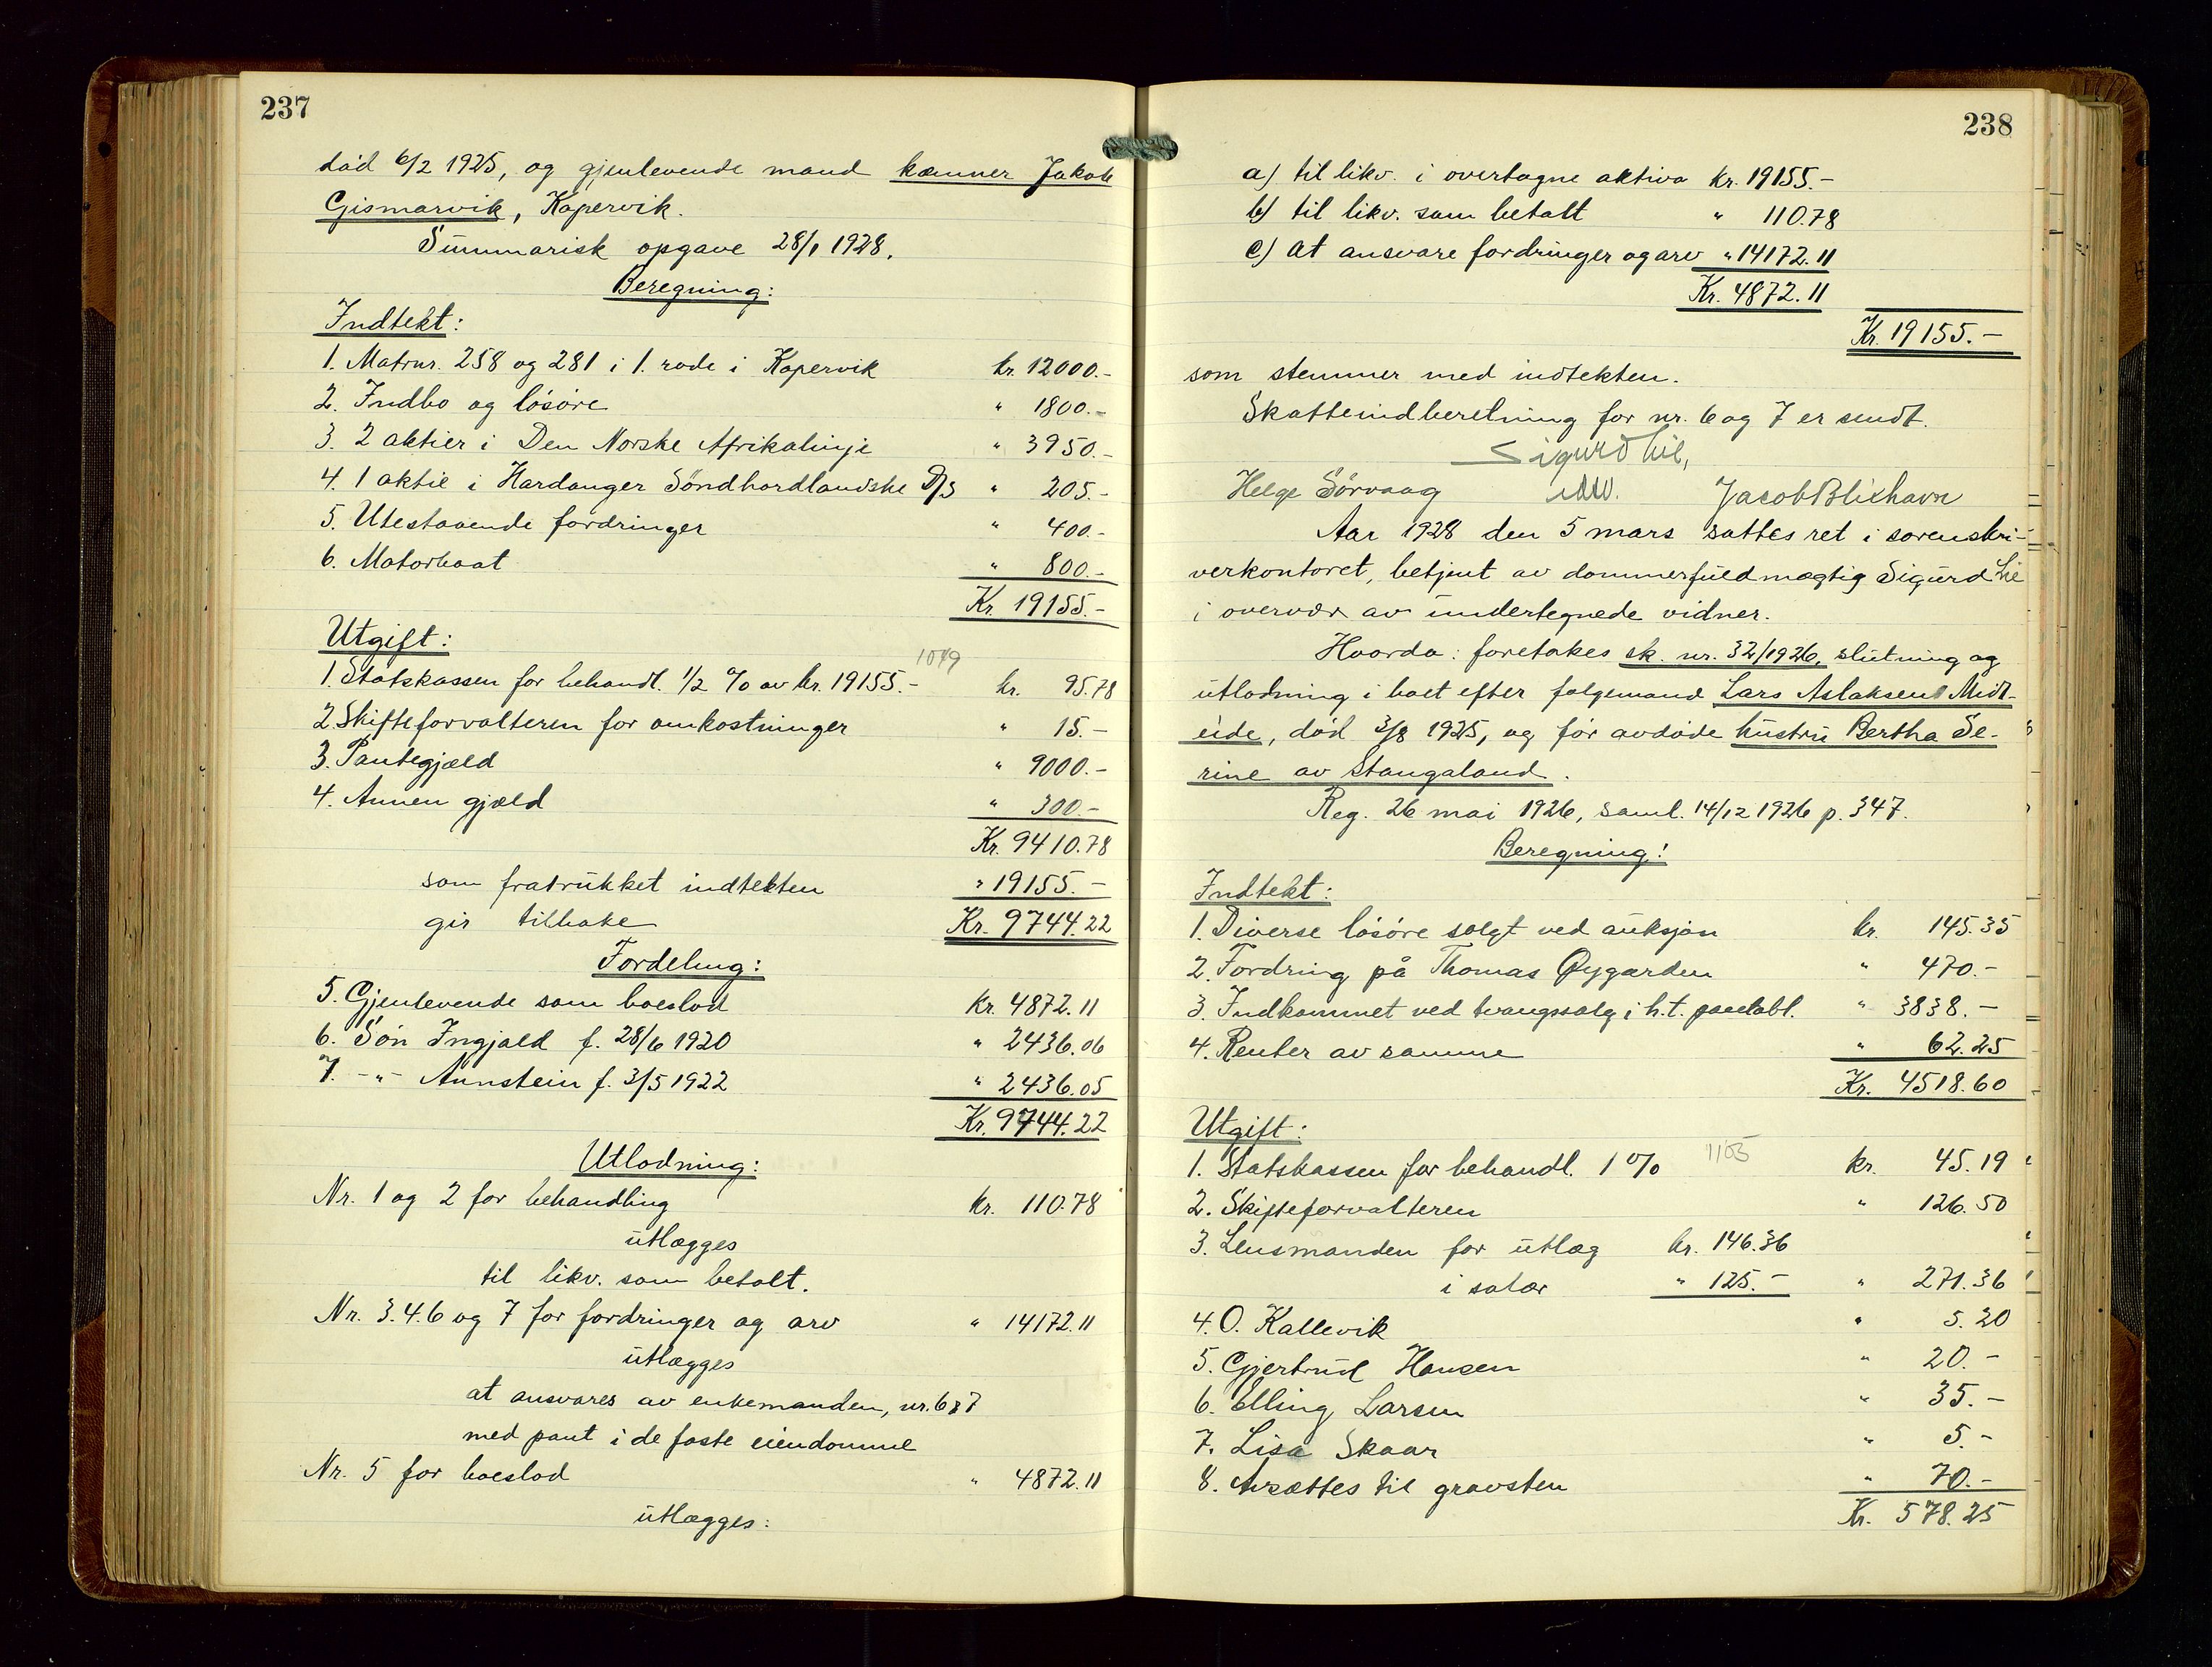 237
död 6/2 1925, og gjenlevende mand kæmner Jakob
Gismarvik, Kopervik.
Summarisk opgave 28/1 1928.
Beregning:
Indtekt:
1. Matrnr. 258 og 281 i 1. rode i Kopervik kr. 12000.-
2. Indbo og lösöre " 1800.-
3. 2 aktier i Den Norske Afrikalinje " 3950.-
4. 1 aktie i Hardanger Söndhordlandske D/S " 205.-
5. Utestaaende fordringer " 400.-
6. Motorbaat " 800.-
Kr. 19155.-
Utgift:
1079
1. Statskassen for behandl. 1/2 % av kr. 19155.- kr. 95.78
2. Skifteforvalteren for omkostninger " 15.-
3. Pantegjæld " 9000.-
4. Annen gjæld " 300.-
Kr. 9410.78
som fratrukket indtekten " 19155.-
gir tilbake Kr. 9744.22
Fordeling:
5. Gjenlevende som boeslod Kr. 4872.11
6. Sön Ingjald f. 28/6 1920 " 2436.06
7. -"- Arnstein f. 3/5 1922 " 2436.05
Kr. 9744.22
Utlodning:
Nr. 1 og 2 for behandling kr. 110.78
utlægges
til likv. som betalt.
Nr. 3.4.6 og 7 for fordringer og arv " 14172.11
utlægges
at ansvares av enkemanden, nr. 6 & 7
med pant i de faste eiendomme
Nr. 5 for boeslod " 4872.11
utlægges:
238
a) til likv. i overtagne aktiva kr. 19155.-
b) til likv. som betalt " 110.78
c) at ansvare fordringer og arv " 14172.11
Kr. 4872.11
Kr. 19155.-
som stemmer med indtekten.
Skatteindberetning for nr. 6 og 7 er sendt.
Sigurd Lie,
Helge Sörvaag Jacob Blikhavn
Aar 1928 den 5 mars sattes ret i sorenskri-
verkontoret, betjent av dommerfuldmægtig Sigurd Lie
i overvær av undertegnede vidner.
Hvorda: foretokes sk. nr. 32/1926, slutning og
utlodning i boet efter følgemand Lars Aslaksen Midt-
eide, död 3/8 1925, og før avdøde hustru Bertha Se-
rine av Stangaland.
Reg. 26 mai 1926, saml. 14/12 1926 p. 347.
Beregning!
Indtekt:
1. Diverse lösöre solgt ved auksjon kr. 145.35
2. Fordring på Thomas Øygarden " 470.-
3. Indkommet ved tvangssalg i h.t. pantobl. " 3838.-
4. Renter av samme " 62.25
Kr. 4518.60
Utgift:
1. Statskassen for behandl. 1 % 1105 kr. 45.19
2. Skifteforvalteren " 126.50
3. Lensmanden for utlæg kr. 146.36
i salær " 125.- " 271.36
4. O. Kallevik " 5.20
5. Gjertrud Hansen " 20.-
6. Elling Larsen " 35.-
7. Lisa Skaar " 5.-
8. Avsættes til gravsten " 70.-
Kr. 578.25